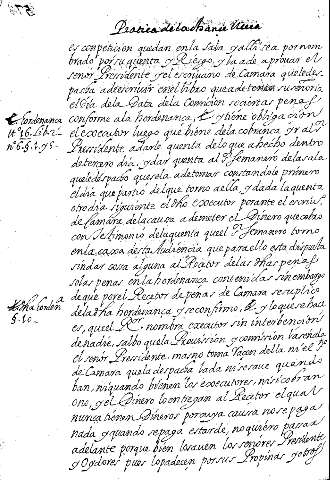 Pratica de la Audiencia
es con peticion quedan en la sala y alla sea por nom
brado por su quenta, y Riesgo, y la a de aprovar el
señor Presidente y el escrivano de Camara que le des
pacha a de escrivir en el libro que a de tener su señoria
el Dia de la Data de la Comision so ciertas penas
conforme a la hordenanza, y tiene obligacion
el executor luego que biene de la cobranza yr al
Presidente a darle quenta de lo que a hecho dentro
de tercero dia, y dar quenta al Semanero de la sala
que le despacho que se la a de tomar constandole primero
el dia que partio de que torno a ella, y dada la quenta
otro dia siguiente el dho executor por ante el escriuº
de Camara de la causa a de meter el Dinero que cobro
con testimonio de la quenta que el Semanero tomo
en la caxa desta Audiencia que para ello esta dispuesta
sin dar cosa alguna al Retor de las dhas penas
so las penas en la hordenanza contenidas sin embargo
de que por el Recetor de penas de Camara se suplico
de la dha hordenanza, y se confirmo, y lo que se haz
es, que el nombra executor sin interbencion
de nadie, salvo que la Provission y comision
el señor Presidente, mas no toma razon della ni el
de Camara que la despacha la da ni se save quando
ban, ni quando bienen los executores, ni si cobran
o no, y el Dinero lo entregan al Recetor el qual
nunca tienen Dineros por cuya causa no se paga
nada, y quando se paga es tarde, no quiero passar
adelante porque bien lo saven los señores Presidente
y Oydores pues lo padecen por sus Propinas y otros
hordenanza
dha horden
§. 10.